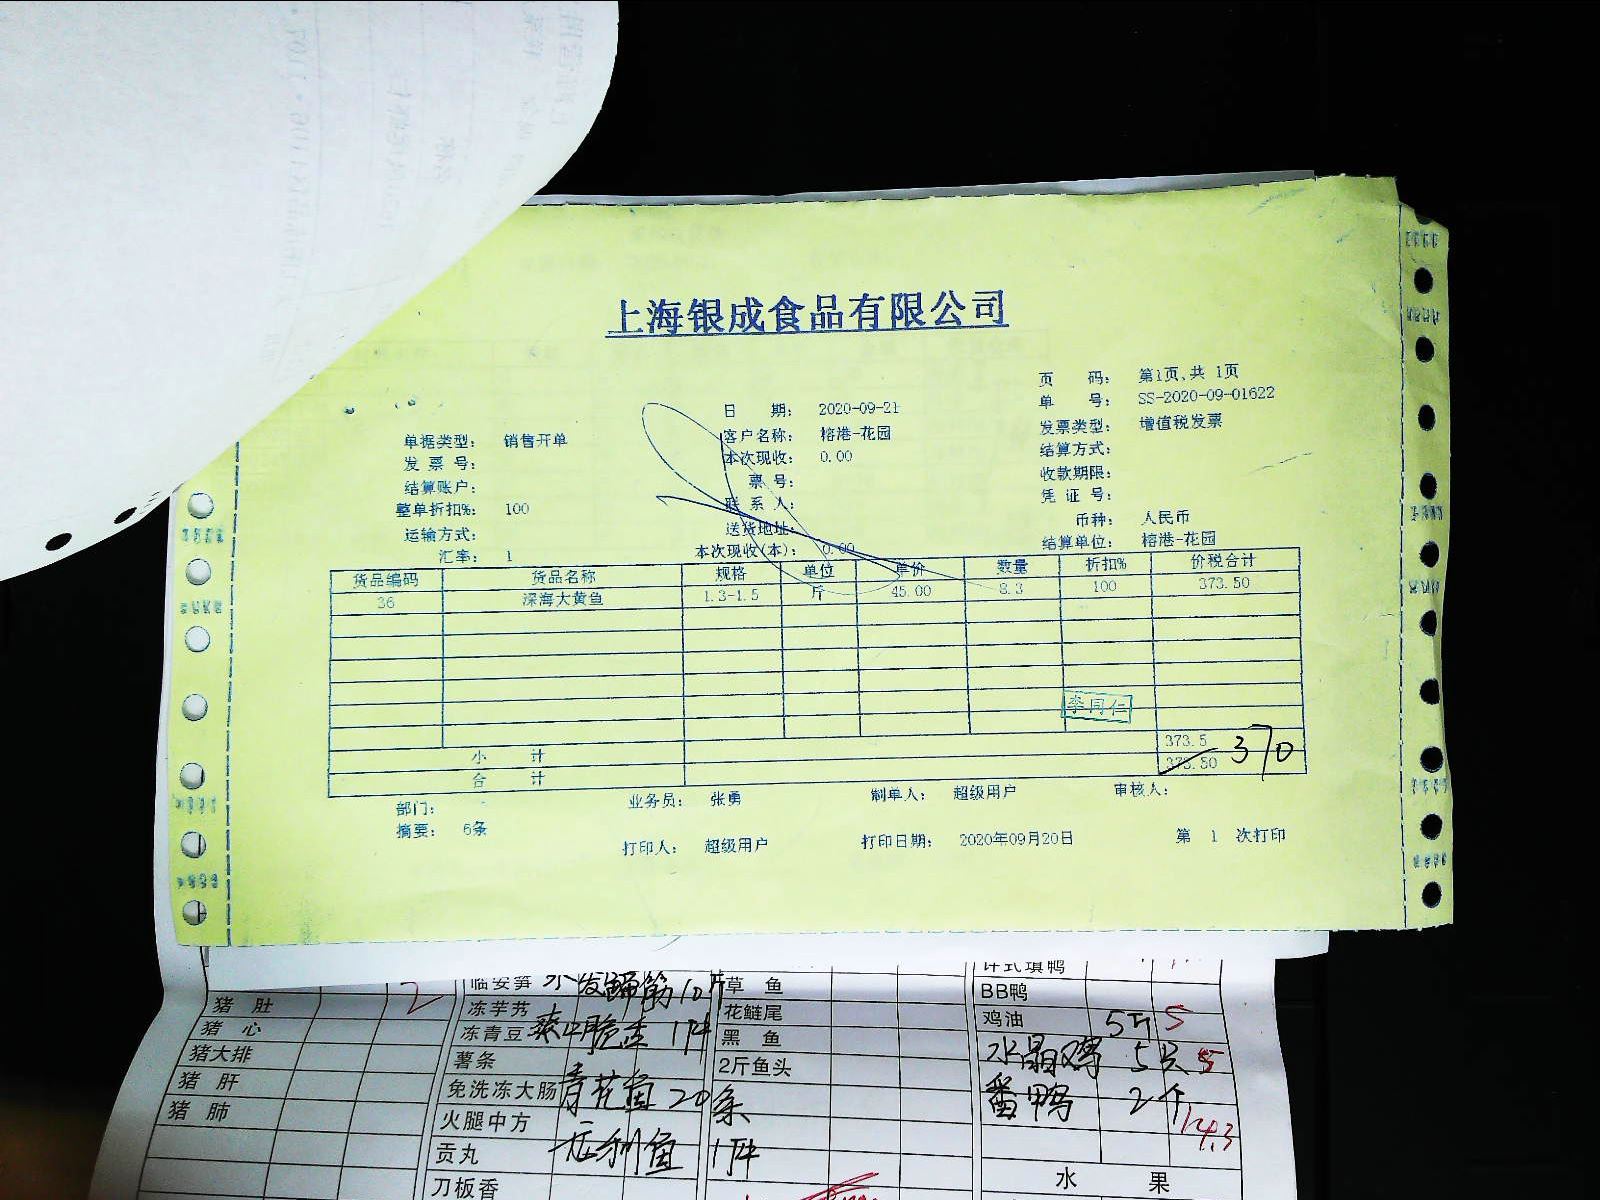 上海银成食品有限公司
页 码： 第1页,共 1页
日 期： 2020-09-21 单 号： SS-2020-09-01622
单据类型： 销售开单 客户名称： 榕港-花园 发票类型： 增值税发票
发 票 号： 本次现收： 0.00 结算方式：
结算账户： 票 号： 收款期限：
整单折扣%： 100 联 系 人： 凭 证 号：
运输方式： 送货地址： 币种： 人民币
汇率： 1 本次现收(本)： 0.00 结算单位： 榕港-花园
货品编码 货品名称 规格 单位 单价 数量 折扣% 价税合计
36 深海大黄鱼 1.3-1.5 斤 45.00 8.3 100 373.50
李同仁
小 计 373.5
合 计 373.50 370
部门： 业务员： 张勇 制单人： 超级用户 审核人：
摘要： 6条
打印人： 超级用户 打印日期： 2020年09月20日 第 1 次打印
临安笋 水发蹄筋10斤 草 鱼
BB鸭
猪 肚 2 冻芋艿 花鲢尾 鸡油 5斤 5
猪 心 冻青豆 1件 黑 鱼 水晶鸡 5只 5
猪大排 薯条 2斤鱼头
猪 肝 免洗冻大肠 青花鱼 20条 番鸭 2个 14.3
猪 肺 火腿中方
贡丸 1件 水 果
刀板香